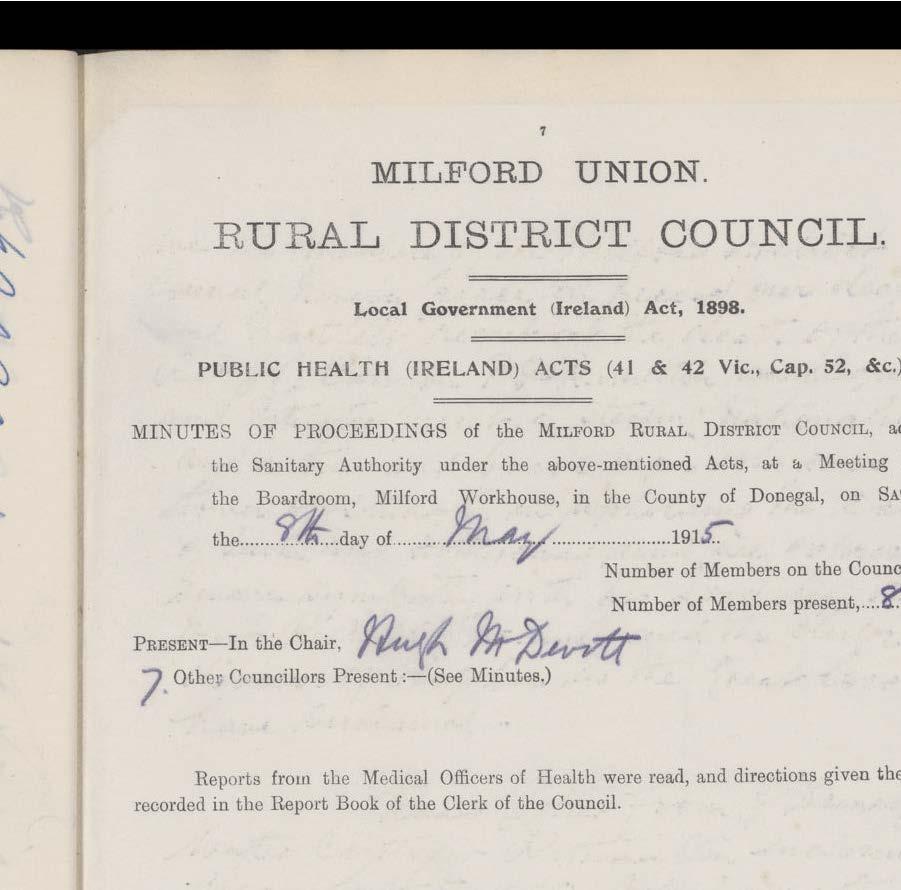 7
MILFORD UNION.
RURAL DISTRICT COUNCIL.
Local Government (Ireland) Act, 1898.
PUBLIC HEALTH (IRELAND) ACTS (41 & 42 Vic., Cap. 52, &c.)
MINUTES OF PROCEEDINGS of the MILFORD RURAL DISTRICT COUNCIL,
the Sanitary Authority under the above-mentioned Acts, at a Meeting
the Boardroom, Milford Workhouse, in the County of Donegal, on
the........8th...day of.........May......................1915.
Number of Members on the
Number of Members present,....8.
PRESENT—In the Chair, Hugh McDevitt
7. Other Councillors Present :—(See Minutes.)
Reports from the Medical Officers of Health were read, and directions given
recorded in the Report Book of the Clerk of the Council.